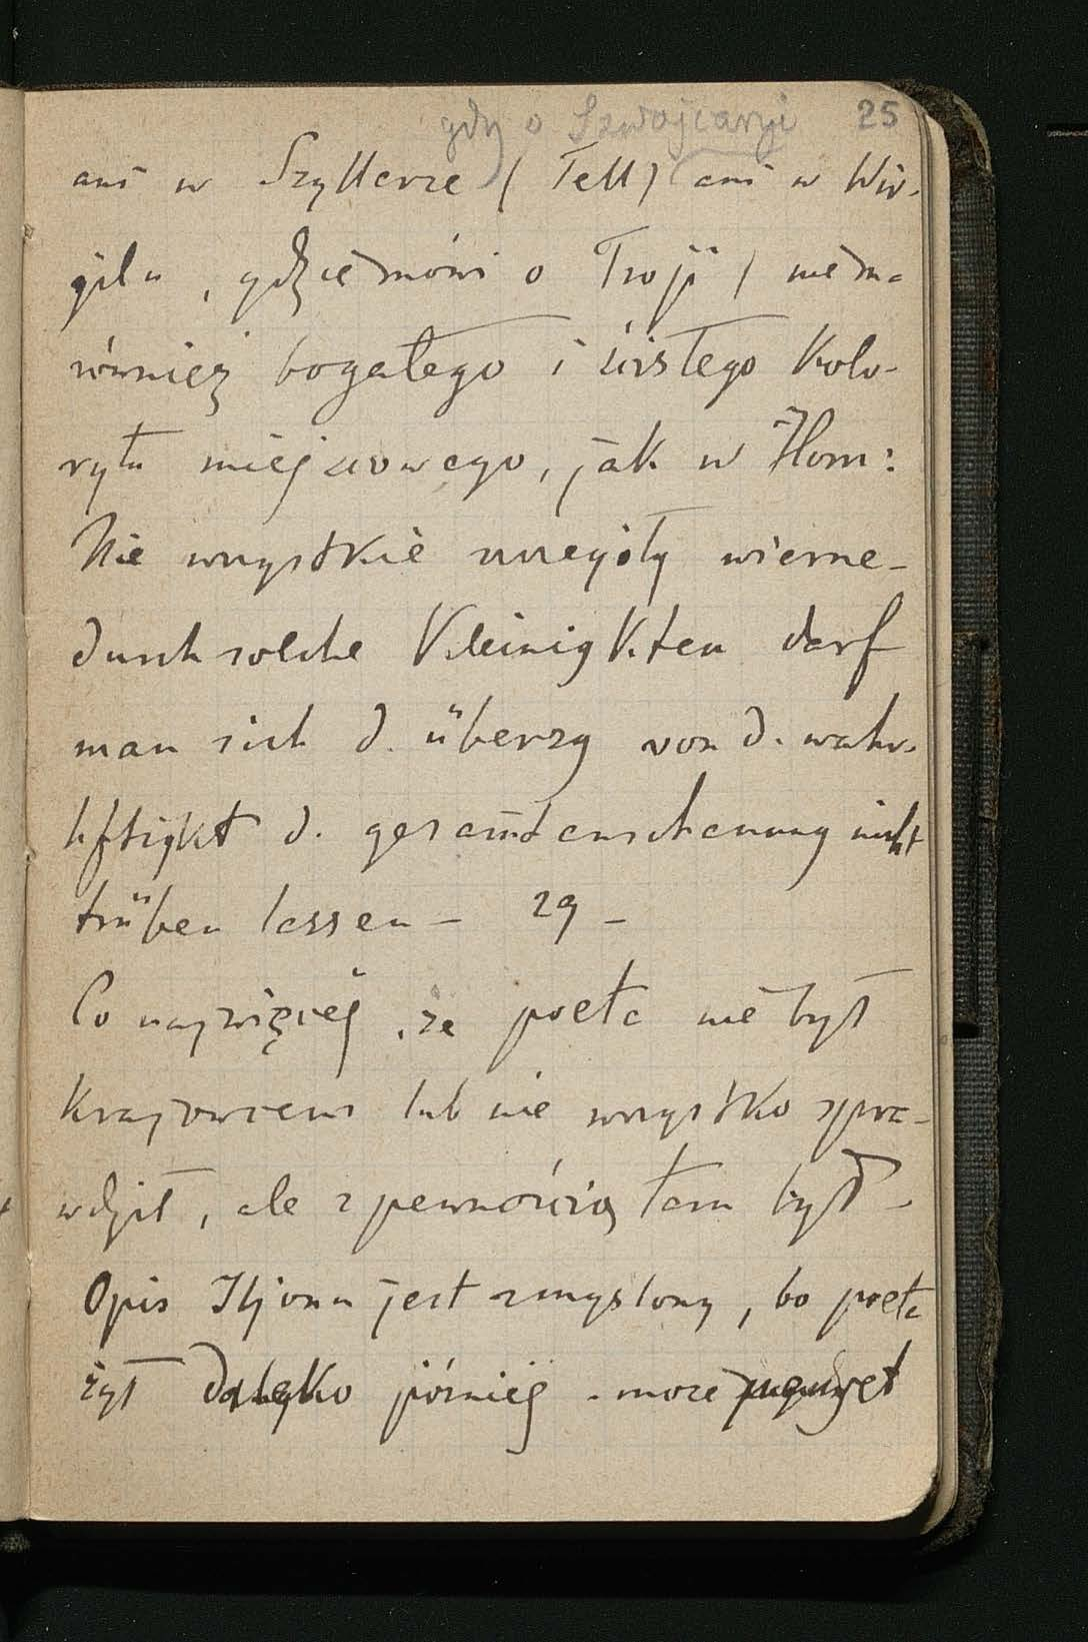 gdy o Szwajcaryi 25
ani w Szyllerze (Tell) ani w Wir-
gilu, gdzie mówi o Troji) niema
równiez bogatego i ścisłego kolo-
rytu miejscowego, jak w Hom:
Nie wszystkie szczegóły wierne -
durch solche Kleinigkten darf
man sich d. überzg von d. wahr-
hftigkt d. gesam̄tanschauung nicht
trüben lassen - 29 -
Co najwięcej, ze poeta nie był
krajowcem lub nie wszystko spra-
wdził, ale z pewnością tam był -
Opis Iljonu jest zmyslony, bo poeta
żył daleko później - moze